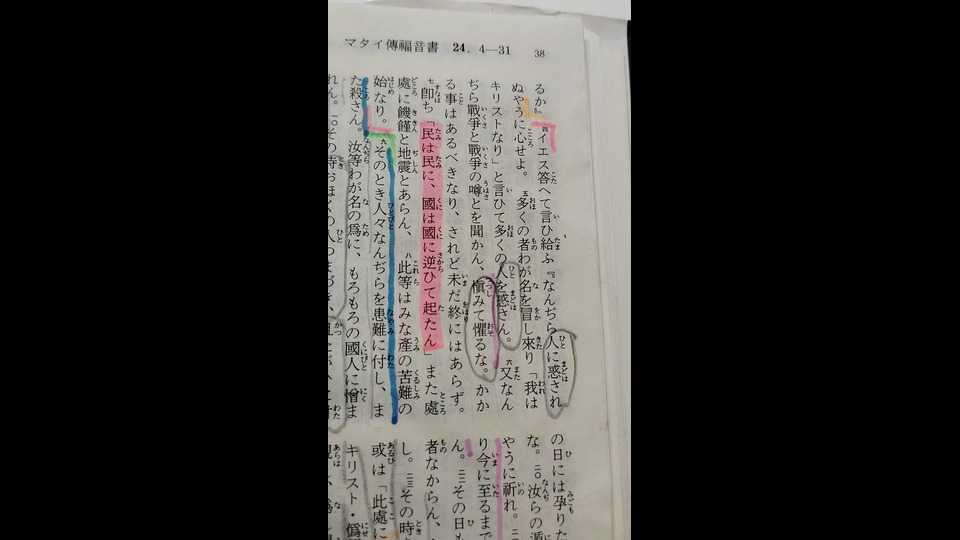 マタイ傳福音書 24. 4―31 38
るか』 四イエス答へて言ひ給ふ『なんぢら人に惑され
ぬやうに心せよ。 五多くの者わが名を冒し來り「我は
キリストなり」と言ひて多くの人を惑さん。 六又なん
ぢら戰爭と戰爭の噂とを聞かん、愼みて懼るな。かか
る事はあるべきなり、されど未だ終にはあらず。
七即ち「民は民に、國は國に逆ひて起たん」また處
處に饑饉と地震とあらん、 八此等はみな產の苦難の
始なり。 九そのとき人々なんぢらを患難に付し、ま
た殺さん。汝等わが名の爲に、もろもろの國人に憎ま
れん。一〇その時おほくの人つまづき、
の日には孕りた
な。二〇汝らの遁
やうに祈れ。
り今に至るまで
ん。 二二その日も
者なからん、
し。二三その時
或は「此處に
キリスト・僞